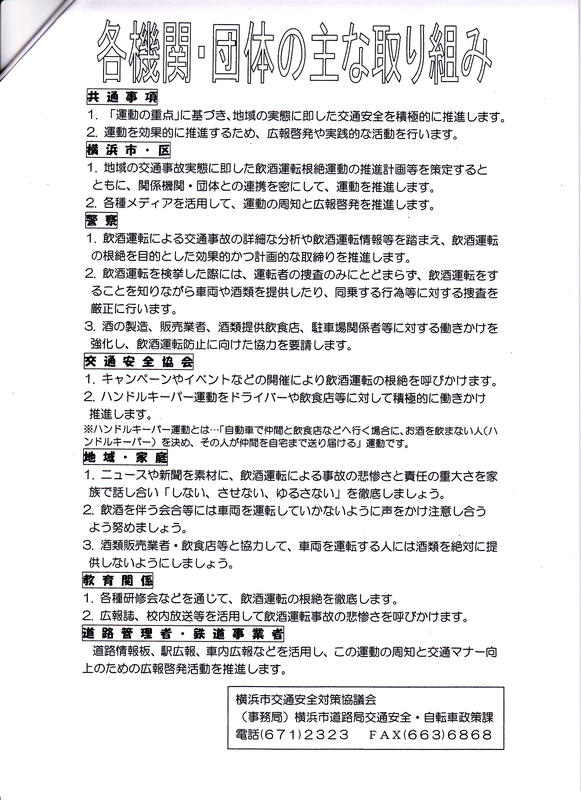 各機関・団体の主な取り組み
共通事項
1．「運動の重点」に基づき、地域の実態に即した交通安全を積極的に推進します。
2．運動を効果的に推進するため、広報啓発や実践的な活動を行います。
横浜市・区
1．地域の交通事故実態に即した飲酒運転根絶運動の推進計画等を策定すると
ともに、関係機関・団体との連携を密にして、運動を推進します。
2．各種メディアを活用して、運動の周知と広報啓発を推進します。
警察
1．飲酒運転による交通事故の詳細な分析や飲酒運転情報等を踏まえ、飲酒運転
の根絶を目的とした効果的かつ計画的な取締りを推進します。
2．飲酒運転を検挙した際には、運転者の捜査のみにとどまらず、飲酒運転をす
ることを知りながら車両や酒類を提供したり、同乗する行為等に対する捜査を
厳正に行います。
3．酒の製造、販売業者、酒類提供飲食店、駐車場関係者等に対する働きかけを
強化し、飲酒運転防止に向けた協力を要請します。
交通安全協会
1．キャンペーンやイベントなどの開催により飲酒運転の根絶を呼びかけます。
2．ハンドルキーパー運動をドライバーや飲食店等に対して積極的に働きかけ
推進します。
※ハンドルキーパー運動とは…「自動車で仲間と飲食店などへ行く場合に、お酒を飲まない人（ハ
ンドルキーパー）を決め、その人が仲間を自宅まで送り届ける」運動です。
地域・家庭
1．ニュースや新聞を素材に、飲酒運転による事故の悲惨さと責任の重大さを家
族で話し合い「しない、させない、ゆるさない」を徹底しましょう。
2．飲酒を伴う会合等には車両を運転していかないように声をかけ注意し合う
よう努めましょう。
3．酒類販売業者・飲食店等と協力して、車両を運転する人には酒類を絶対に提
供しないようにしましょう。
教育関係
1．各種研修会などを通じて、飲酒運転の根絶を徹底します。
2．広報誌、校内放送等を活用して飲酒運転事故の悲惨さを呼びかけます。
道路管理者・鉄道事業者
道路情報板、駅広報、車内広報などを活用し、この運動の周知と交通マナー向
上のための広報啓発活動を推進します。
横浜市交通安全対策協議会
（事務局）横浜市道路局交通安全・自転車政策課
電話(671)2323　FAX(663)6868